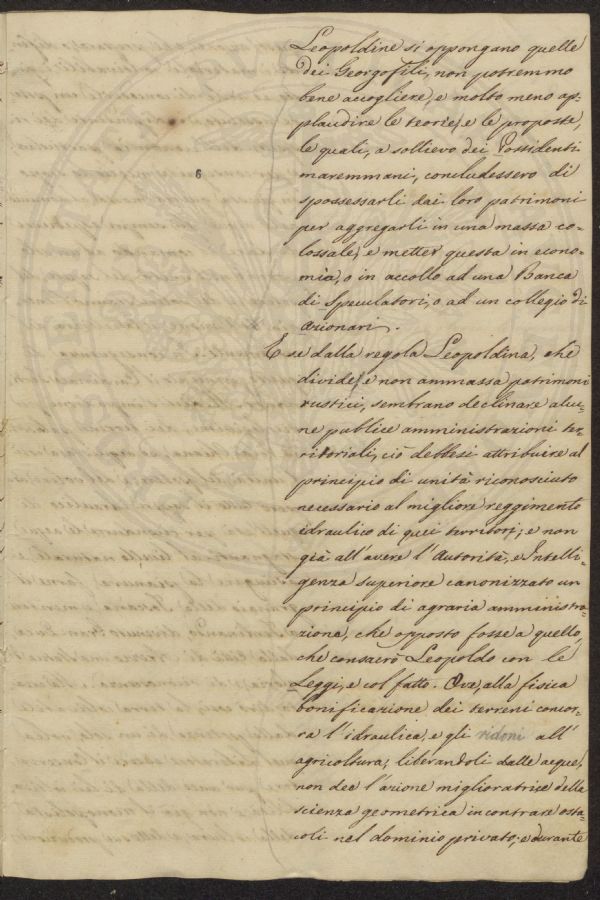 6
Leopoldine si oppongano quelle
dei Georgofili, non potremmo
bene accogliere, e molto meno ap-
plaudire le teorie, e le proposte,
le quali, a sollievo dei Possidenti
maremmani, concludessero di
spossessarli dai loro patrimoni
per aggregarli in una massa co-
lossale, e metter questa in econo-
mia, o in accollo ad una Banca
di Speculatori, o ad un collegio di
azionari.
E se dalla regola Leopoldina, che
divide, e non ammassa patrimoni
rustici, sembrano declinare alcu-
ne publice amministrazioni ter-
ritoriali, ciò debbesi attribuire al
principio di unità riconosciuto
necessario al migliore reggimento
idraulico di quei territorj; e non
già all'avere l'Autorità, e Intelli-
genza superiore canonizzato un
principio di agraria amministra-
zione, che opposto fosse a quello,
che consacrò Leopoldo con le
Leggi, e col fatto. Ove, alla fisica
bonificazione dei terreni concor-
ra l'idraulica, e gli ridoni all'
agricoltura, liberandoli dalle acque,
non dee l'azione miglioratrice della
scienza geometrica incontrare osta-
coli nel dominio privato; e durante